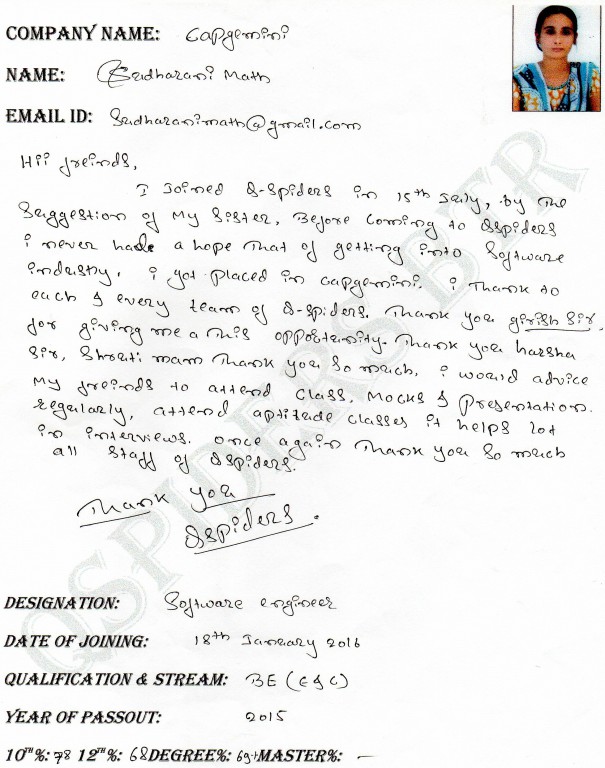 COMPANY NAME: Capgemini
NAME: Sudharani Math
EMAIL ID: Sudharanimath@gmail.com
Hii freinds,
I Joined Q-spiders in 15th July, by the
suggestion of My Sister, Before coming to Qspiders
i never hade a hope That of getting into Software
industry. i got placed in capgemini. i Thank to
each & every team of Q-spiders. Thank you girish sir,
for giving me a this oppoctunity. Thank you harsha
sir, Shruti mam Thank you so much, i would advice
My freinds to attend class, Mocks & Presentation.
regularly, attend aptitude classes it helps lot
in interviews. once again Thank you so much
all staff of Qspiders.
Thank you
Qspiders.
QSPIDERS BTR
DESIGNATION: Software engineer
DATE OF JOINING: 18th January 2016
QUALIFICATION & STREAM: BE (E&C)
YEAR OF PASSOUT: 2015
10TH%: 78 12TH%: 68 DEGREE%: 69+ MASTER%: —